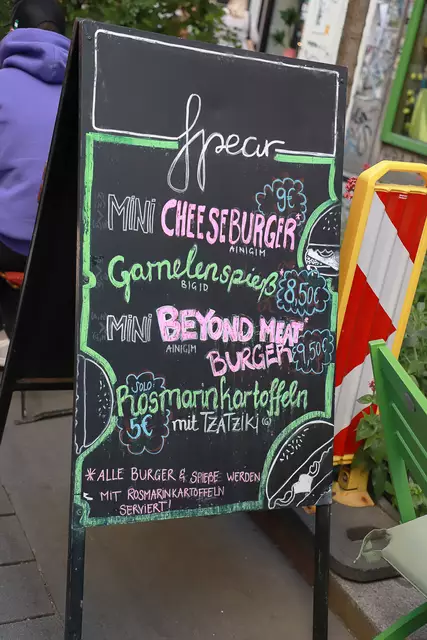 Spear
9€
MiNi CHEESEBURGER*
A1N1G1M
Garnelenspieß
B1G1D
8,50€
MiNi BEYOND MEAT*
A1N1G1M
BURGER
9,50€
SOLO:
5€
Rosmarinkartoffeln
mit TZATZIKI (G)
* ALLE BURGER & SPIEßE WERDEN
MIT ROSMARINKARTOFFELN
SERVIERT!